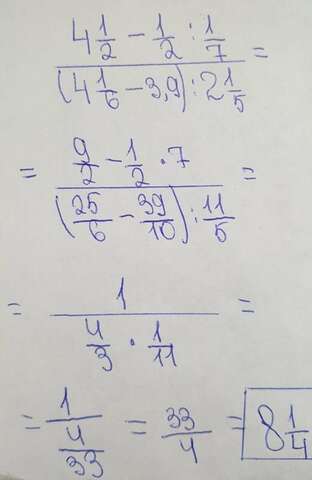 4 1/2 − 1/2 : 1/7
(4 1/6 − 3,9) : 2 1/5 =
= 9/2 − 1/2 · 7
(25/6 − 39/10) : 11/5 =
= 1
4/3 · 1/11 =
= 1/(4/33) = 33/4 = 8 1/4